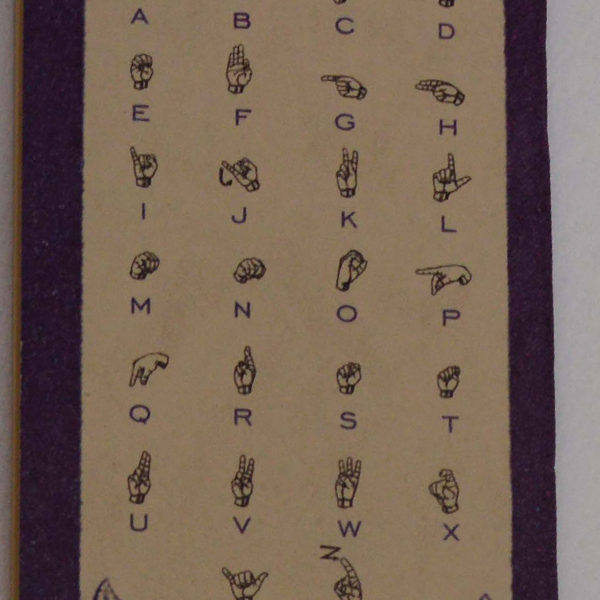 A B C D
E F G H
I J K L
M N O P
Q R S T
U V W X
Z